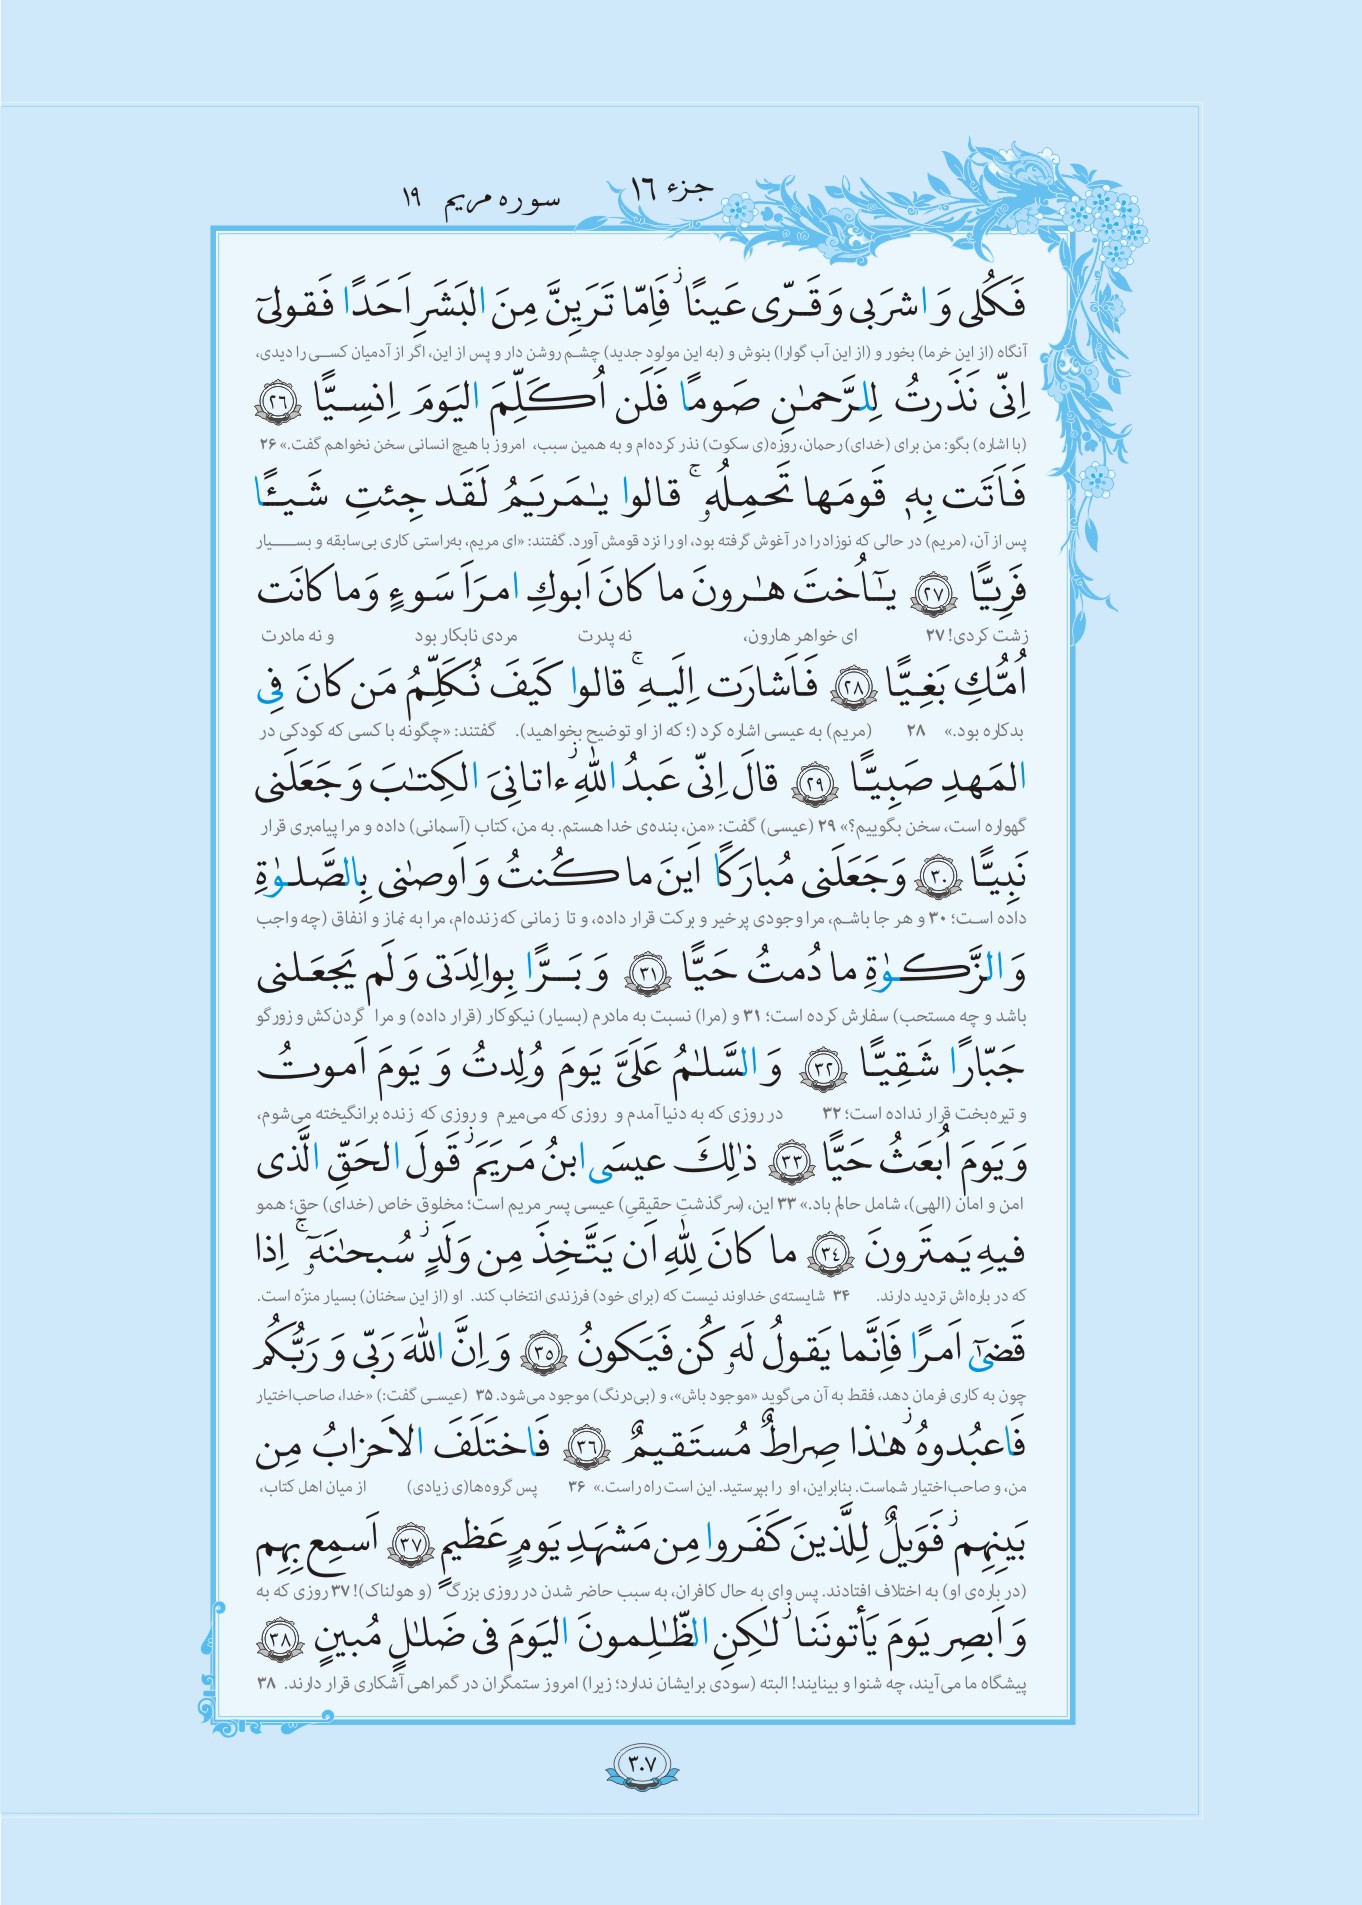 جزء ١٦
سوره مریم ١٩
فَکُلی وَ اشرَبی وَ قَرّی عَینًا ۖز فَاِمّا تَرَیِنَّ مِنَ البَشَرِ اَحَدًا فَقولیٓ
آنگاه (از این خرما) بخور و (از این آب گوارا) بنوش و (به این مولود جدید) چشم روشن دار و پس از این، اگر از آدمیان کسی را دیدی،
اِنّی نَذَرتُ لِلرَّحمٰنِ صَومًا فَلَن اُکَلِّمَ الیَومَ اِنسِیًّا ﴿٢٦﴾
(با اشاره) بگو: من برای (خدای) رحمان، روزه(ی سکوت) نذر کرده‌ام و به همین سبب، امروز با هیچ انسانی سخن نخواهم گفت.» ۲۶
فَاَتَت بِهٖ قَومَها تَحمِلُهٗ ۚج قالوا یٰمَریَمُ لَقَد جِئتِ شَیـًٔا
پس از آن، (مریم) در حالی که نوزاد را در آغوش گرفته بود، او را نزد قومش آورد. گفتند: «ای مریم، به‌راستی کاری بی‌سابقه و بسیار
فَرِیًّا ﴿٢٧﴾ یٰٓاُختَ هٰرونَ ما کانَ اَبوکِ امرَاَ سَوءٍ وَما کانَت
زشت کردی! ۲۷ ای خواهر هارون، نه پدرت مردی نابکار بود و نه مادرت
اُمُّكِ بَغِیًّا ﴿٢٨﴾ فَاَشارَت اِلَیهِ ۚج قالوا کَیفَ نُکَلِّمُ مَن کانَ فِی
بدکاره بود.» ۲۸ (مریم) به عیسی اشاره کرد (؛ که از او توضیح بخواهید). گفتند: «چگونه با کسی که کودکی در
المَهدِ صَبِیًّا ﴿٢٩﴾ قالَ اِنّی عَبدُ اللهِ ۖز ءاتانِیَ الکِتٰبَ وَ جَعَلَنی
گهواره است، سخن بگوییم؟» ۲۹ (عیسی) گفت: «من، بنده‌ی خدا هستم. به من، کتاب (آسمانی) داده و مرا پیامبری قرار
نَبِیًّا ﴿٣٠﴾ وَ جَعَلَنی مُبارَکًا اَینَ ما کُنتُ وَ اَوصٰنی بِالصَّلوٰةِ
داده است؛ ۳۰ و هر جا باشم، مرا وجودی پرخیر و برکت قرار داده، و تا زمانی که زنده‌ام، مرا به نماز و انفاق (چه واجب
وَ الزَّکوٰةِ ما دُمتُ حَیًّا ﴿٣١﴾ وَ بَرًّا بِوالِدَتی وَ لَم یَجعَلنی
باشد و چه مستحب) سفارش کرده است؛ ۳۱ و (مرا) نسبت به مادرم (بسیار) نیکوکار (قرار داده) و مرا گردن‌کش و زورگو
جَبّارًا شَقِیًّا ﴿٣٢﴾ وَ السَّلٰمُ عَلَیَّ یَومَ وُلِدتُ وَ یَومَ اَموتُ
و تیره‌بخت قرار نداده است؛ ۳۲ در روزی که به دنیا آمدم و روزی که می‌میرم و روزی که زنده برانگیخته می‌شوم،
وَ یَومَ اُبعَثُ حَیًّا ﴿٣٣﴾ ذٰلِكَ عیسَی ابنُ مَریَمَ ۖز قَولَ الحَقِّ الَّذی
امن و امان (الهی)، شامل حالم باد.» ۳۳ این، (سرگذشتِ حقیقیِ) عیسی پسر مریم است؛ مخلوق خاص (خدای) حق؛ همو
فیهِ یَمتَرونَ ﴿٣٤﴾ ما کانَ لِلّٰهِ اَن یَتَّخِذَ مِن وَلَدٍ ۖز سُبحٰنَهٗٓ ۚج اِذا
که در باره‌اش تردید دارند. ۳۴ شایسته‌ی خداوند نیست که (برای خود) فرزندی انتخاب کند. او (از این سخنان) بسیار منزّه است.
قَضیٰٓ اَمرًا فَاِنَّما یَقولُ لَهٗ کُن فَیَکونُ ﴿٣٥﴾ وَ اِنَّ اللهَ رَبّی وَ رَبُّکُم
چون به کاری فرمان دهد، فقط به آن می‌گوید «موجود باش»، و (بی‌درنگ) موجود می‌شود. ۳۵ (عیسی گفت:) «خدا، صاحب‌اختیار
فَاعبُدوهُ ۖز هٰذا صِراطٌ مُستَقیمٌ ﴿٣٦﴾ فَاختَلَفَ الاَحزابُ مِن
من، و صاحب‌اختیار شماست. بنابراین، او را بپرستید. این است راه راست.» ۳۶ پس گروه‌ها(ی زیادی) از میان اهل کتاب،
بَینِهِم ۖز فَوَیلٌ لِلَّذینَ کَفَروا مِن مَشهَدِ یَومٍ عَظیمٍ ﴿٣٧﴾ اَسمِع بِهِم
(در باره‌ی او) به اختلاف افتادند. پس وای به حال کافران، به سبب حاضر شدن در روزی بزرگ (و هولناک)! ۳۷ روزی که به
وَ اَبصِر یَومَ یَأتونَنا ۖز لٰکِنِ الظّٰلِمونَ الیَومَ فی ضَلٰلٍ مُبینٍ ﴿٣٨﴾
پیشگاه ما می‌آیند، چه شنوا و بینایند! البته (سودی برایشان ندارد؛ زیرا) امروز ستمگران در گمراهی آشکاری قرار دارند. ۳۸
٣٠٧